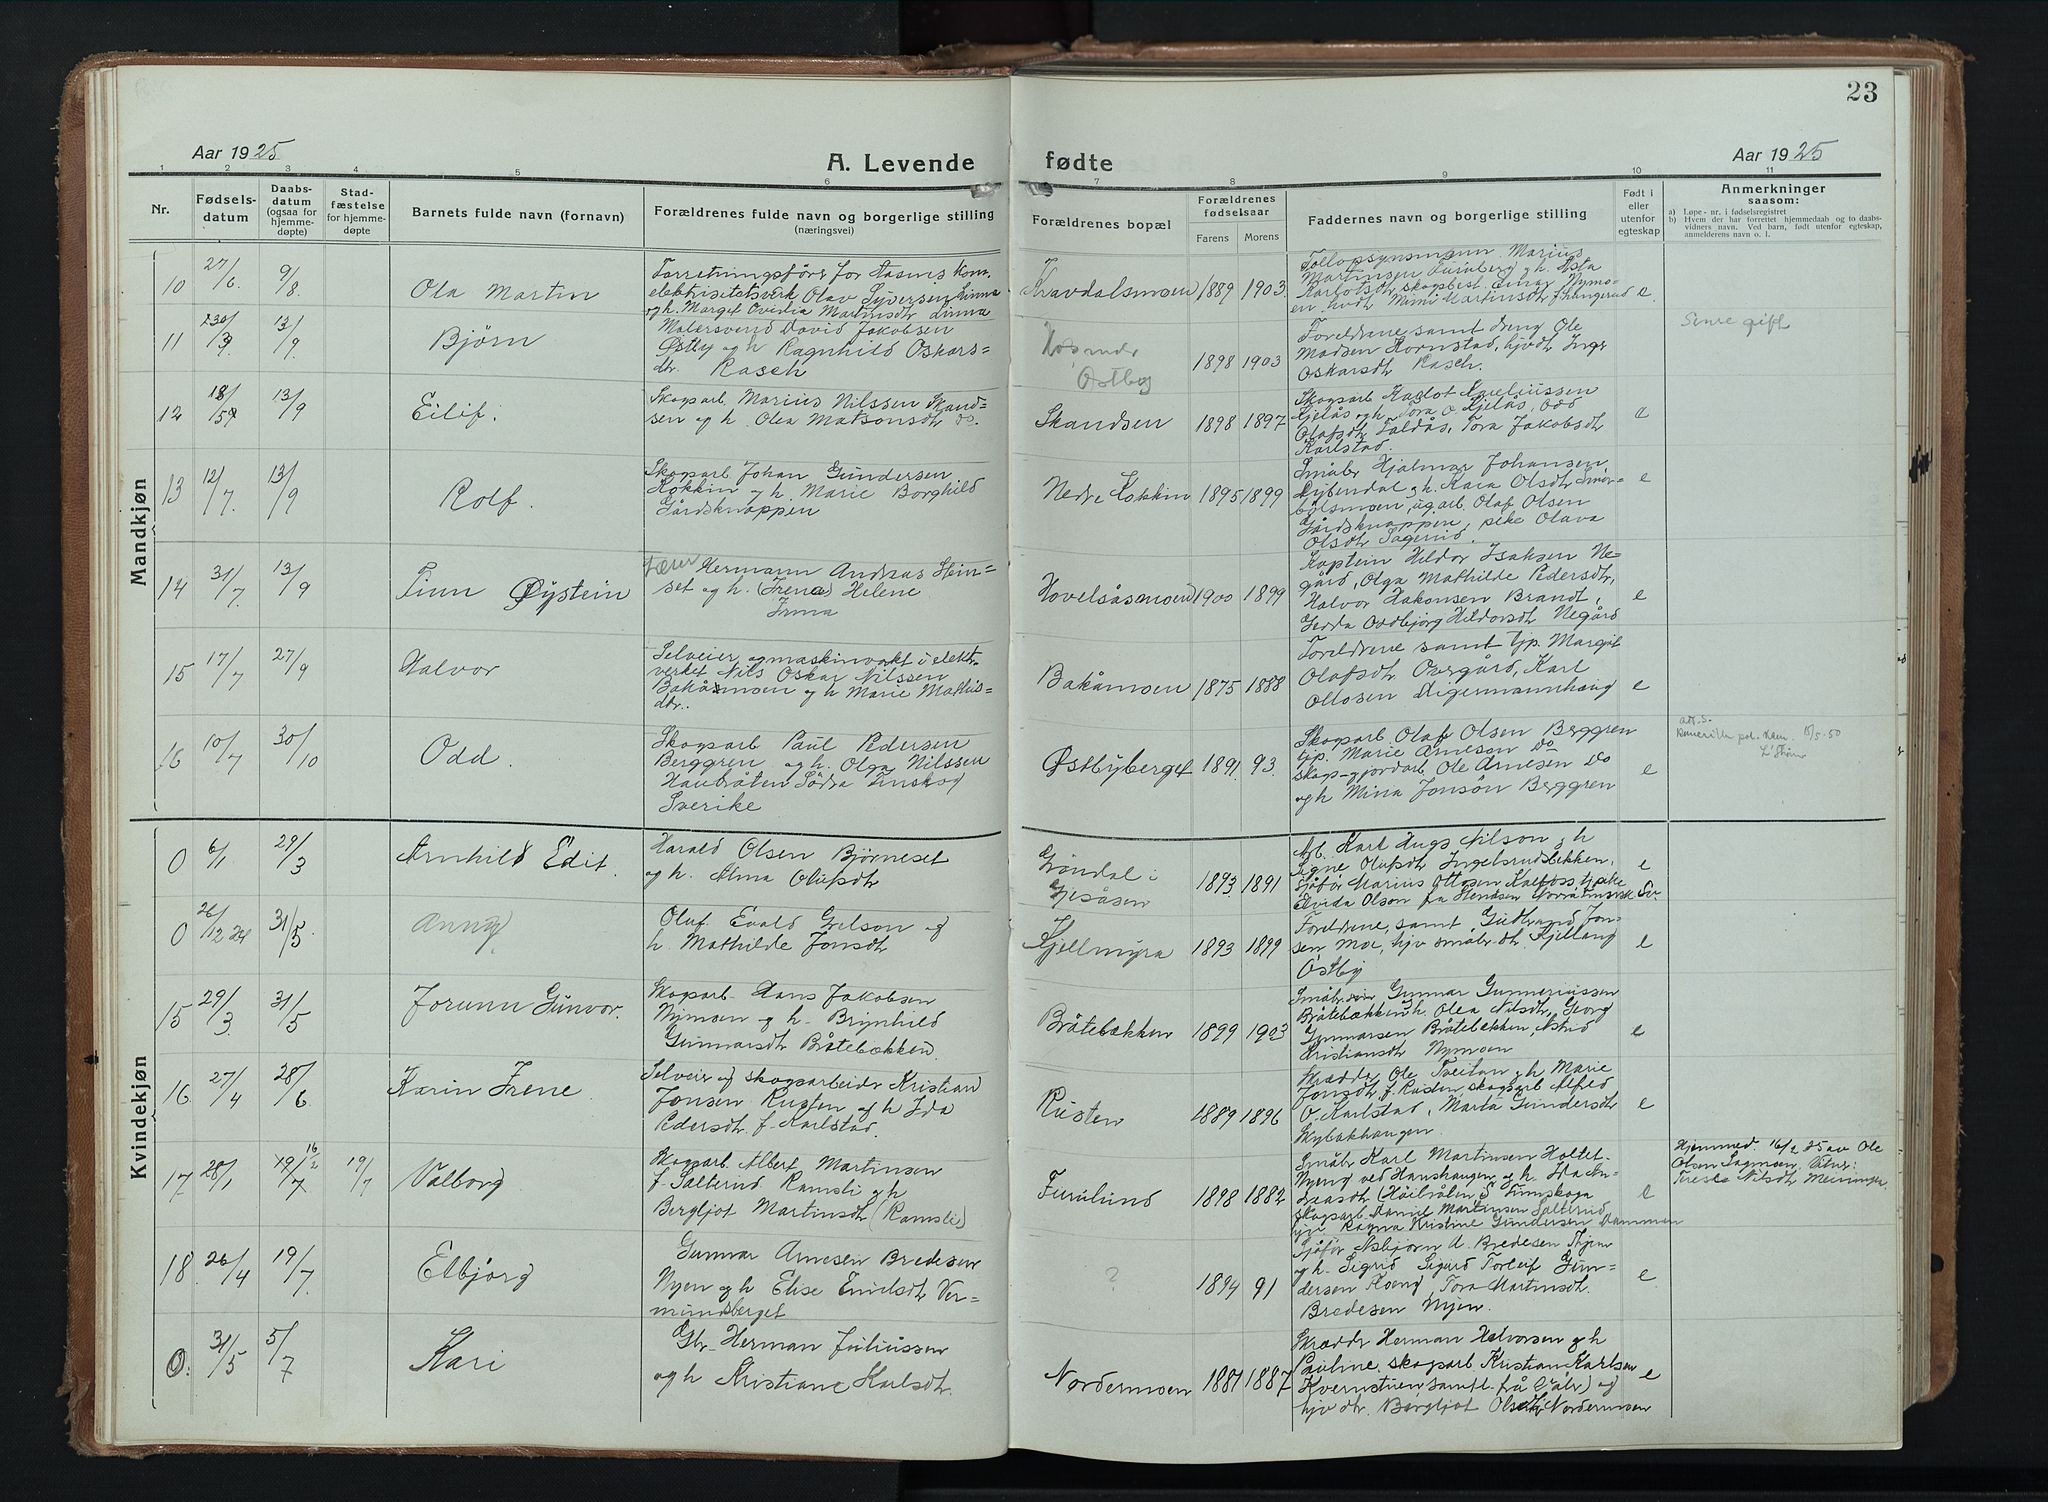 23
Aar 1925
A. Levende fødte
Aar 1925
1 2 3 4 5 6 7 8 9 10 11
Nr.
Fødsels-
datum
Daabs-
datum
(ogsaa for
hjemme-
døpte)
Stad-
fæstelse
for hjemme-
døpte
Barnets fulde navn (fornavn)
Forældrenes fulde navn og borgerlige stilling
(næringsvei)
Forældrenes bopæl
Forældrenes
fødselsaar
Farens
Morens
Faddernes navn og borgerlige stilling
Født i
eller
utenfor
egteskap
Anmerkninger
saasom:
a) Løpe-nr. i fødselsregistret
b) Hvem der har forrettet hjemmedaab og to daabs-
vidners navn. Ved barn, født utenfor egteskap,
anmelderens navn o. l.
Mandkjøn
10
27/6
9/8
Ola Martin
Forretningsfører for Aasnes kom.
elektrisitetsverk Olav Syversen Linna
og h. Marget Ovidia Martinsdtr Linna
Kravdalsmoen
1889
1903
Martinsen Furuberg og h. Asta
e
11
13/9
Bjørn
Malersvend David Jakobsen
Østby og h Ragnhild Oskars-
dtr. Rasch
Østby
1898
1903
Foreldrene samt dreng Ole
Madsen Hornstad, hjvdtr Inger
Oskarsdtr Rasch.
Senere gift
12
13/9
Eilif.
Skogsarb. Marius Nilssen Skand-
sen og h. Olea Matsonsdtr do.
Skandsen
1898
1897
Skogsarb Karlot
Kjelås og h. Tora o. Kjelås, Odd
Olafsdtr Faldås, Tora Jakobsdtr
Karlstad.
e
13
12/7
13/9
Rolf.
Skogsarb Johan Gundersen
Kokkin og h. Marie Borghild
Gårdsknappen
Nedre Kokkin
1895
1899
Småbr Hjalmar Johansen
Dybendal og h. Kaia Olsdtr Smør-
bølsmoen, ug.arb. Olaf Olsen
Gårdsknappen, pike Olava
Olsdtr Sagerud.
e
14
31/7
13/9
Finn Øystein
Lærer Hermann Andreas Hein-
set og h. (Irene) Helene
Irma
Hovelsåsmoen
1900
1899
Kaptein Hildor Isaksen Ne-
gård, Olga Mathilde Pedersdtr,
Halvor Hakonsen Brandt,
Gerda Oddbjørg Hildorsdtr Negård
e
15
17/7
27/9
Halvor
Selveier og maskinvakt i elektr.
verket Nils Oskar Nilssen
Bakåsmoen og h Marie Mathis-
dtr.
Bakåmoen
1875
1888
Foreldrene samt tjp. Margit
Olafsdtr Overgård, Karl
Ottosen Digermannhaug
e
16
10/7
30/10
Odd.
Skogsarb Paul Pedersen
Berggren og h. Olga Nilssen
Haubråten Södra Finskog
Sverike
Østbyberget
1891
93
Skogsarb Olaf Olsen Berggren
tjp. Marie Arnesen do
skogs- gjordarb. Ole Arnesen do
og h Mina Jonsøn Berggren
e
Kvindekjøn
0
6/1
29/3
Arnhild Edit.
Harald Olsen Bjørneset
og h. Alma Olufsdtr
Grøndal i
Gjesåsen
1893
1891
Arb. Karl Hugo Nilson og h
Signe Olufsdtr Ingelsrudbekken.
Sjåfør Marius Ottosen Kalfoss, tj.pike
e
0
26/12 24
31/5
Anny
Oluf Evald Grelson og
h. Mathilde Jonsdtr
Kjellmyra
1893
1899
Foreldrene, samt Gudbrand Jon-
sen Moe, hjv småbr.dtr. Kjellaug
Østby
e
15
29/3
31/5
Jorunn Gunvor.
Skogsarb. Hans Jakobsen
Nymoen og h. Brynhild
Gunnarsdtr Bråtebækken.
Bråtebækken
1899
1903
Gunnar Gunneriussen
Bråtebækken h. Olea Nilsdtr, Georg
Gunnarsen Bråtebækken, Astrid
Kristiansdtr Nymoen
e
16
27/4
28/6
Karin Irene
Selveier og skogsarbeider Kristian
Jonsen Rusten og h Ida
Pedersdtr f. Karlstad.
Rusten
1889
1896
Skrædder Ole Tveitan og h Marie
Jonsdtr f. Rusten, skogsarb Alfred
O. Karlstad, Marta Gundersdtr
Mybakhaugen
e
17
28/1
16/2
19/7
19/7
Valborg
Skogsarb. Albert Martinsen
f. Salterud Ramsli og h
Bergljot Martinsdtr (Ramsli)
Furulund
1898
1882
Småbr Karl Martinsen Holtet-
Nyeng ved Hanshaugen og h. Ida An-
skogsarb. Daniel Martinsen Salterud,
hjv. Ragna Kristine Gundersen Dammen
e
Hjemmed. 16/2 25 av Ole
Olsen Sagmoen. Vitner:
18
26/4
19/7
Elbjørg
Gunnar Arnesen Bredesen
Nyen og h Elise Emilsdtr Ver-
mundsberget
?
1894
91
Sjåfør Asbjørn A. Bredesen Nyen
og h. Sigrid Sigurd Torleif Gun-
dersen Koeng, Tora Martinsdtr.
Bredesen Nyen.
e
0
31/5
5/7
Kari
Gbr. Herman Juliussen
og h Kristiane Karlsdtr.
Nordermoen
1881
1887
Skrædder Herman Halvorsen og h
Pauline, skogsarb Kristian Karlsen
hjv dtr. Bergljot Olsdtr Nordermoen
e